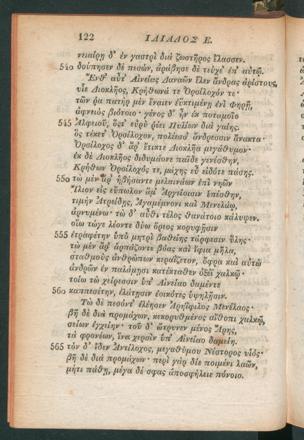 122 ΙΛΙΑΔΟΣ Ε.
νειαίρῃ δ' ἐν γαστρὶ διὰ ζωστῆρος ἔλασσεν.
540 δούπησεν δὲ πεσών, ἀράβησε δὲ τεύχε' ἐπ' αὐτῷ.
Ἔνθ' αὖτ' Αἰνείας Δαναῶν ἕλεν ἄνδρας ἀρίστους,
υἷε Διοκλῆος, Κρήθωνά τε Ὀρσίλοχόν τε·
τῶν ῥα πατὴρ μὲν ἔναιεν ἐϋκτιμένῃ ἐνὶ Φηρῇ,
ἀφνειὸς βιότοιο· γένος δ' ἦν ἐκ ποταμοῖο
545 Ἀλφειοῦ, ὅςτ' εὐρὺ ῥέει Πυλίων διὰ γαίης·
ὃς τέκετ' Ὀρσίλοχον, πολέεσσ' ἄνδρεσσιν ἄνακτα·
Ὀρσίλοχος δ' ἄρ' ἔτικτε Διοκλῆα μεγάθυμον·
ἐκ δὲ Διοκλῆος διδυμάονε παῖδε γενέσθην,
Κρήθων Ὀρσίλοχός τε, μάχης εὖ εἰδότε πάσης.
550 τὼ μὲν ἄρ' ἡβήσαντε μελαινάων ἐπὶ νηῶν
Ἴλιον εἰς εὔπωλον ἅμ' Ἀργείοισιν ἑπέσθην,
τιμὴν Ἀτρείδῃς, Ἀγαμέμνονι καὶ Μενελάῳ,
ἀρνυμένω· τὼ δ' αὖθι τέλος θανάτοιο κάλυψεν.
οἵω τώγε λέοντε δύω ὄρεος κορυφῇσιν
555 ἐτραφέτην ὑπὸ μητρὶ βαθείης τάρφεσιν ὕλης·
τὼ μὲν ἄρ' ἁρπάζοντε βόας καὶ ἴφια μῆλα,
σταθμοὺς ἀνθρώπων κεραΐζετον, ὄφρα καὶ αὐτὼ
ἀνδρῶν ἐν παλάμῃσι κατέκταθεν ὀξέϊ χαλκῷ·
τοίω τὼ χείρεσσιν ὑπ' Αἰνείαο δαμέντε
560 καππεσέτην, ἐλάτῃσιν ἐοικότες ὑψηλῇσιν.
Τὼ δὲ πεσόντ' ἐλέησεν Ἀρηΐφιλος Μενέλαος·
βῆ δὲ διὰ προμάχων, κεκορυθμένος αἴθοπι χαλκῷ,
σείων ἐγχείην· τοῦ δ' ὤτρυνεν μένος Ἄρης,
τὰ φρονέων, ἵνα χερσὶν ὑπ' Αἰνείαο δαμείη.
565 τὸν δ' ἴδεν Ἀντίλοχος, μεγαθύμου Νέστορος υἱός·
βῆ δὲ διὰ προμάχων· περὶ γὰρ δίε ποιμένι λαῶν,
μήτι πάθῃ, μέγα δέ σφας ἀποσφήλειε πόνοιο.